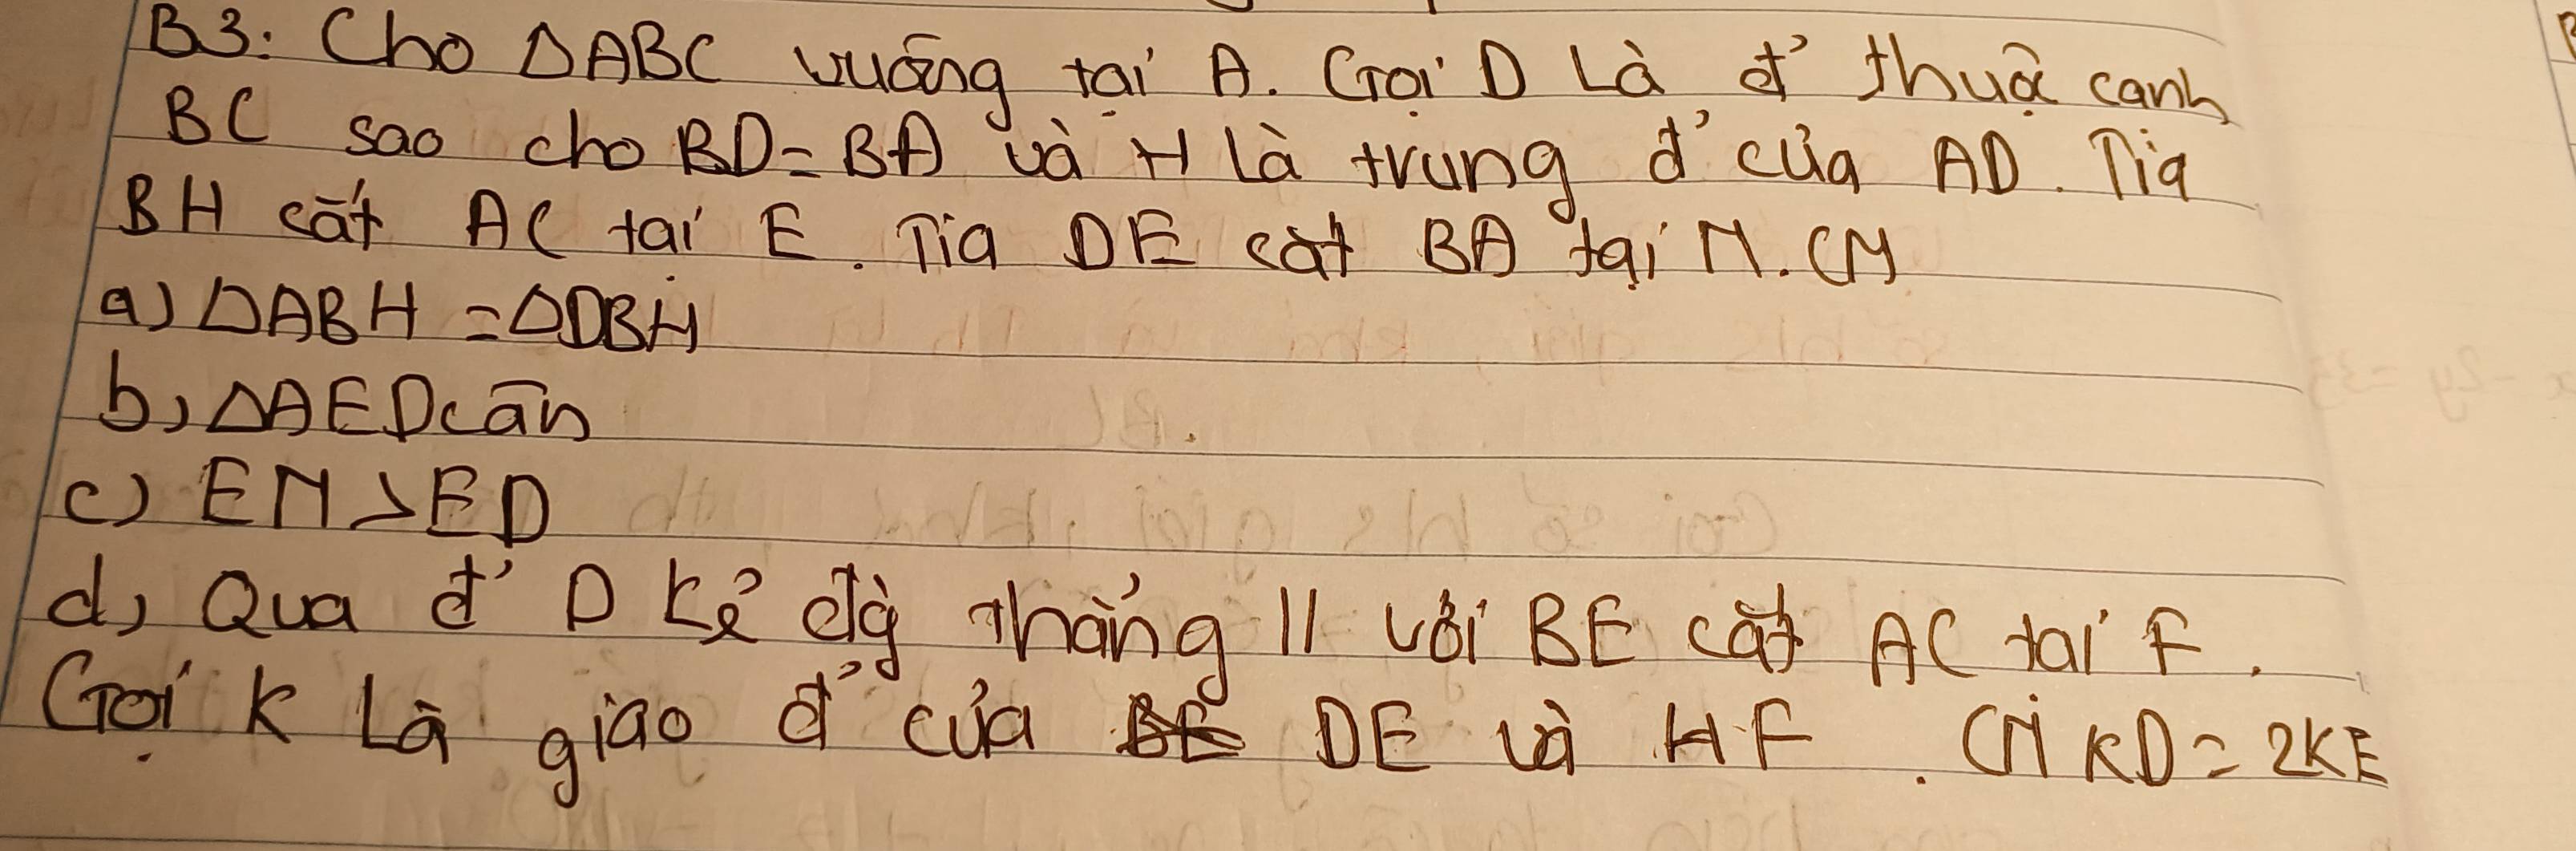 B3: Cho ΔABC vuông tại A. Gọi D Là đ' thuộc cạnh
BC sao cho BD = BA và H Là trung đ' của AD. Tia
BH cắt AC tại E. Tia DE cắt BA tại M. CM
a) ΔABH = ΔDBH
b, ΔAED cân
c) EM > ED
d, Qua đ' D kẻ đg thẳng // với BE cắt AC tại F.
Gọi K Là giao đ' của DE và HF. CM KD = 2KE